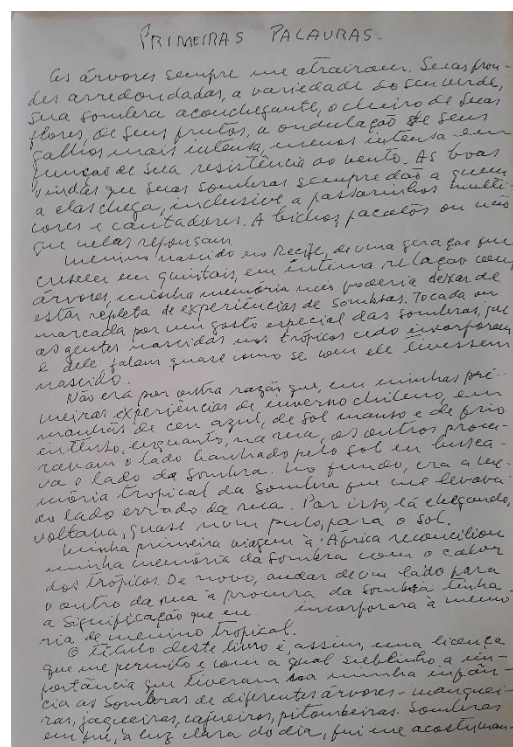 PRIMEIRAS PALAVRAS.
As árvores sempre me atraíram. Suas fron-
des arredondadas, a variedade do seu verde,
sua sombra aconchegante, o cheiro de suas
flores, de seus frutos, a ondulação de seus
galhos mais intensa, menos intensa em
função de sua resistência ao vento. As boas
vindas que suas sombras sempre dão a quem
a elas chega, inclusive a passarinhos multi-
cores e cantadores. A bichos, pacatos ou não
que nelas repousam
Menino nascido no Recife, de uma geração que
cresceu em quintais, em íntima relação com
árvores, minha memória não poderia deixar de
estar repleta de experiências de sombras. Tocada ou
marcada por um gosto especial das sombras, que
as gentes nascidas nos trópicos cedo incorporam
e dele falam quase como se com ele tivessem
nascido.
Não era por outra razão que, em minhas pri-
meiras experiências de inverno chileno, em
manhãs de céu azul, de sol manso e de frio
intenso, enquanto, na rua, os outros procu-
ravam o lado banhado pelo sol eu busca-
va o lado da sombra. No fundo, era a me-
mória tropical da sombra que me levava
ao lado errado da rua. Por isto, lá chegando,
voltava, quase num pulo, para o sol.
Minha primeira viagem à África reconciliou
minha memória da sombra com o calor
dos trópicos. De novo, andar de um lado para
o outro da rua à procura da sombra tinha
a significação que eu incorporara à memó-
ria de menino tropical.
O título deste livro é, assim, uma licença
que me permito e com a qual sublinho a im-
portância que tiveram na minha infân-
cia as sombras de diferentes árvores - manguei-
ras, jaqueiras, cajueiros, pitombeiras. Sombras
em que, à luz clara do dia, fui me acostuman-